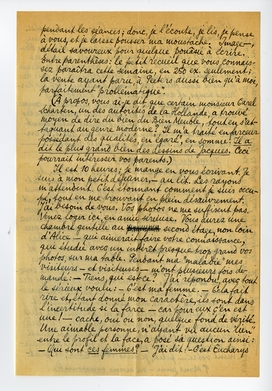 pendant les séances; donc, je l'écoute, je lis, je pense
à vous, et je laisse pousser ma moustache.
entre parenthèses: le petit recueil que vous connais-
sez paraîtra cette semaine, en 250 ex. seulement;
la vente ayant paru, à
parfaitement problématique.
(À propos, vous ai-je dit que certain monsieur Carel
un des autorités de la Hollande, a trouvé
moyen de dire du bien du Bon Minute, tout en
du genre moderne? Il m'a traité enfarceur
possédant des qualités, en égard, en somme. Il a
dit le plus grand bien des dessins de Jacques. Ceci
pourrait intéresser vos parents.)
Il est 10 heures; je mange en vous écrivant. Je
suis à mon petit déjeuner — au lit. Des rayons
m'attendent. C'est étonnant comment je suis occu-
pé, tout en me trouvant en plein désœuvrement.
J'ai besoin de vous. Vos photos ne me suffisent pas.
Venez loger ici, en amie sérieuse. Vous aurez une
chambre gentille au second étage, non loin
d'Alice — qui aimerait votre connaissance,
que étudie avec un intérêt presque trop grand vos
photos, sur ma table. Pendant ma "maladie" mes
visiteurs — et visiteuses — m'ont plusieurs fois de-
mandé: — Tiens, qui est-ce? J'ai répondu, avec tout
le sérieux voulu: — C'est ma femme. — Cela fait
rire et, étant donné mon caractère, ils sont dans
l'incertitude si la farce — car pour eux c'en est
une! — cache, oui ou non, quelque fond de vérité.
Une aimable personne, n'ayant vu aucun "lien"
entre le profil et la face, a posé sa question ainsi:
— Qui sont ces femmes? — J'ai dit: — C'est Eucharys